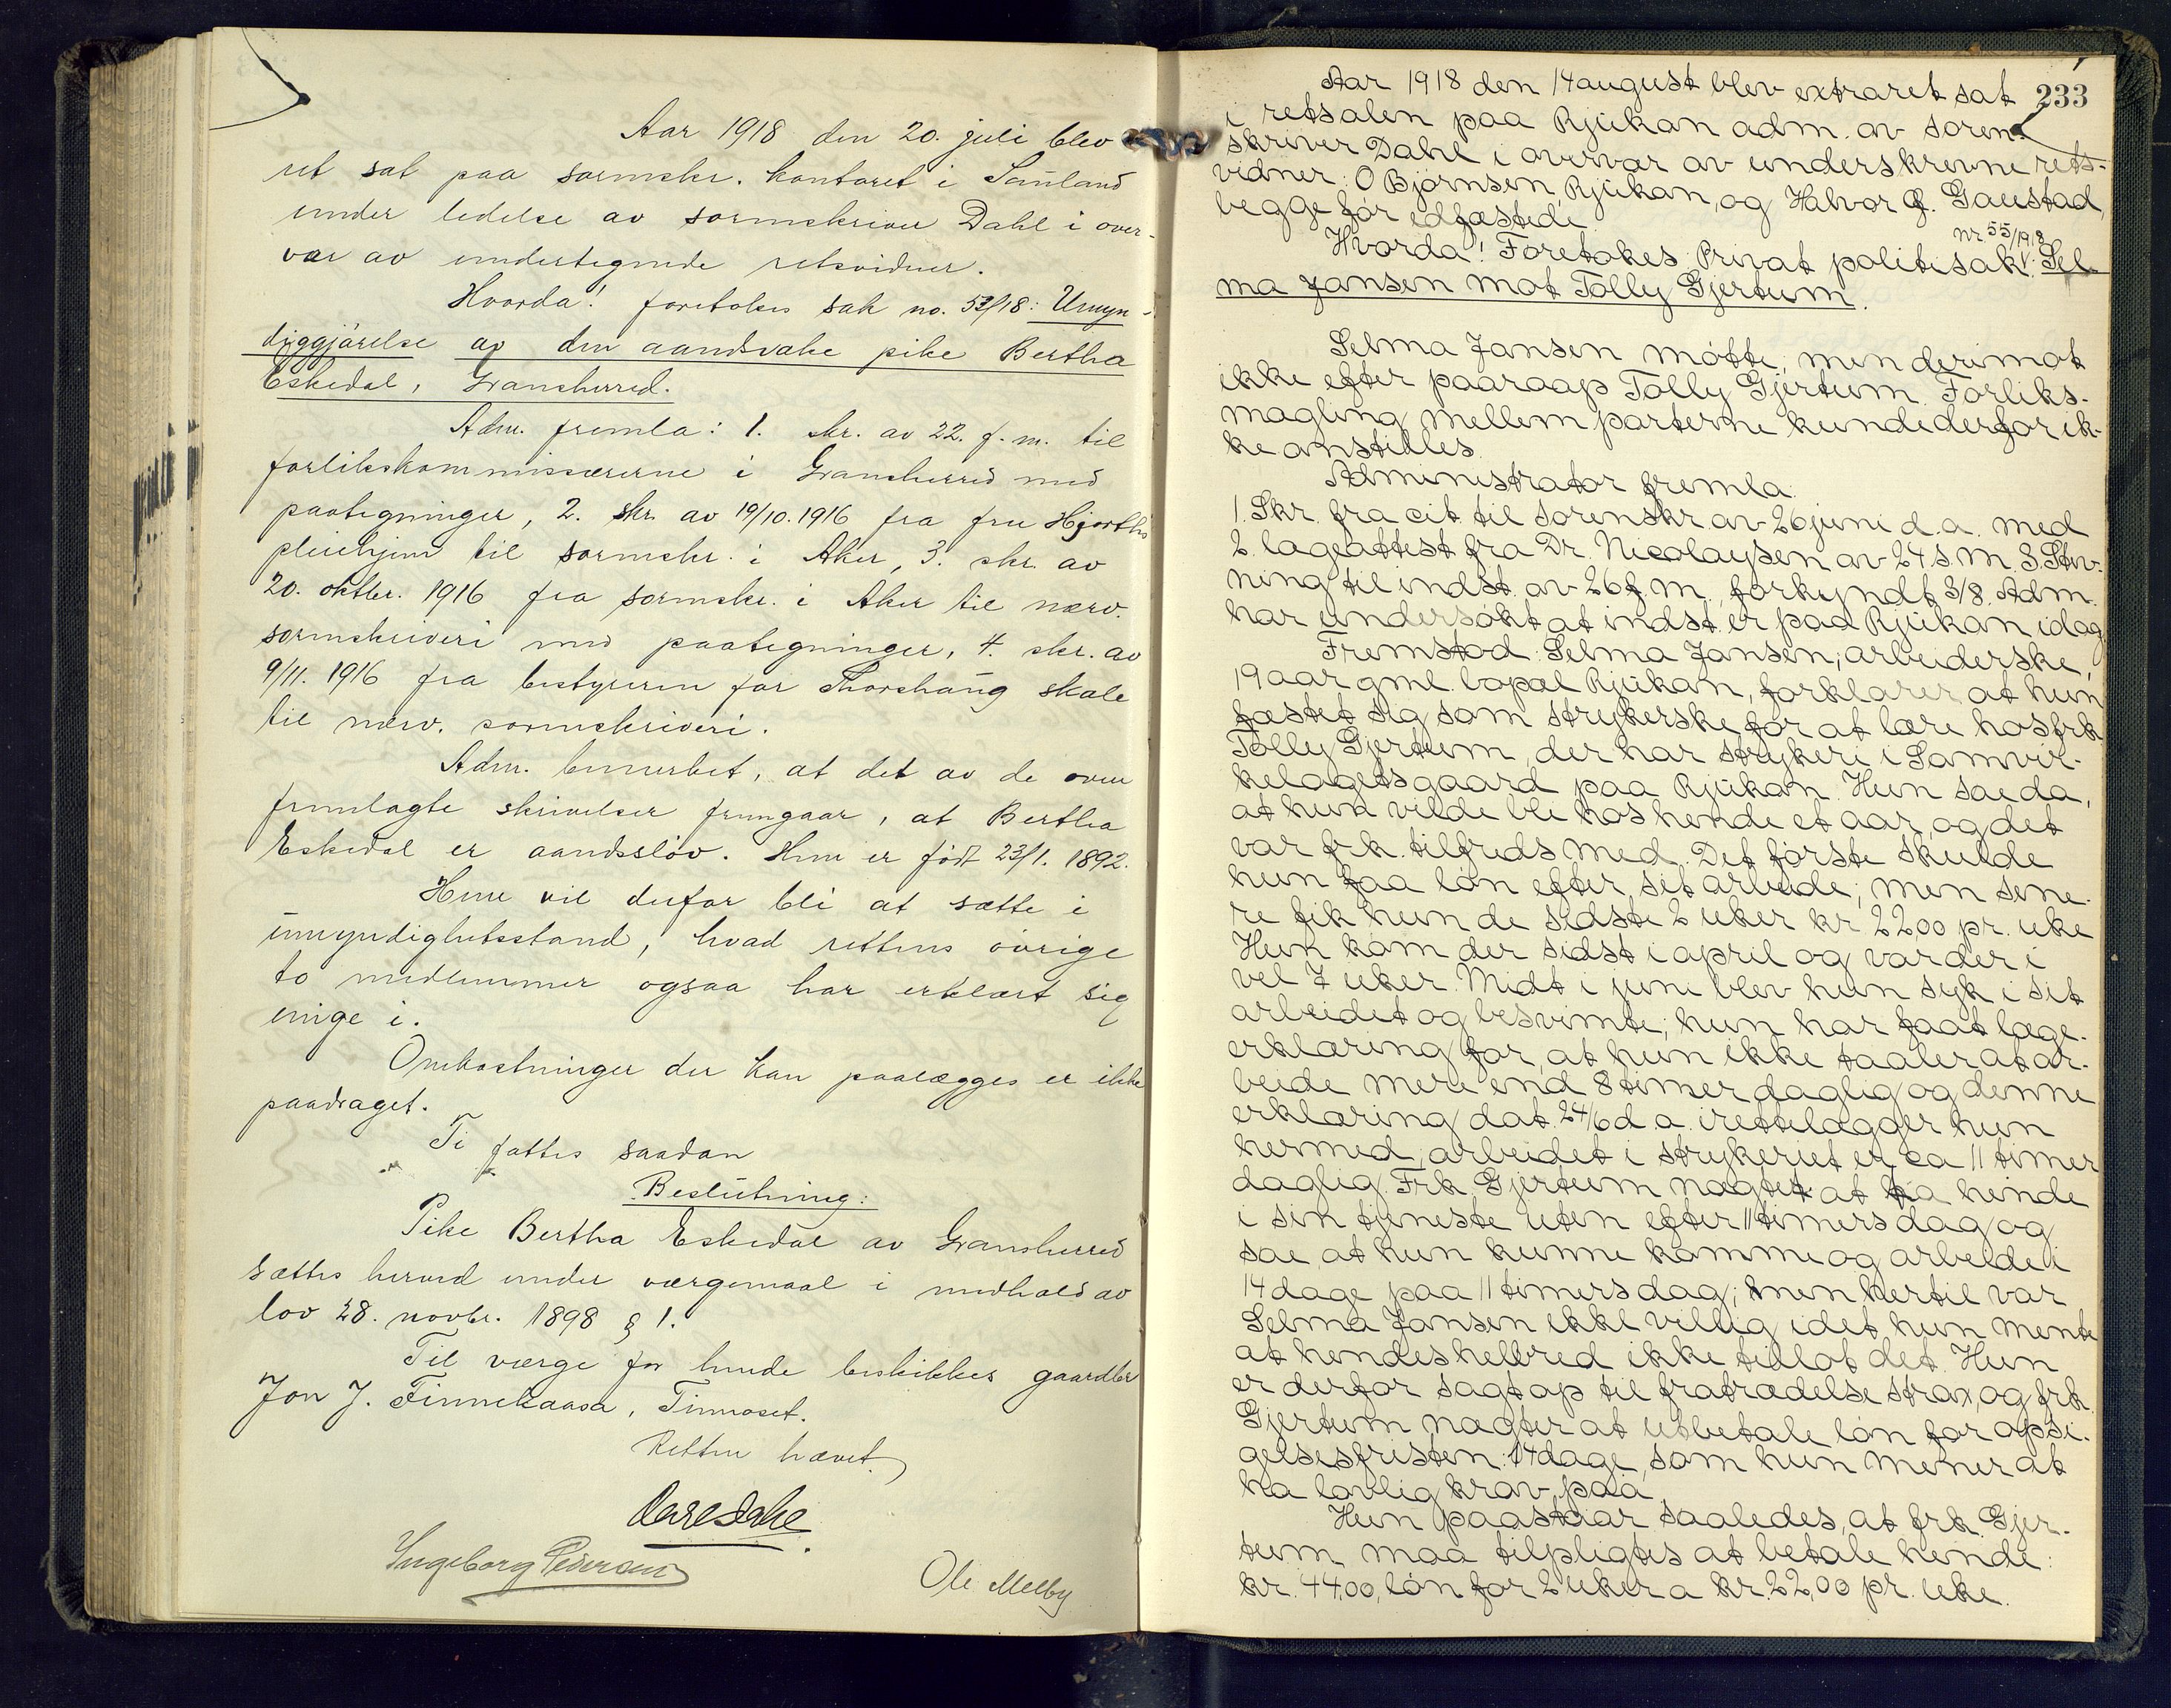 Aar 1918 den 20. juli blev
ret sat paa sorenskr. kontoret i Sauland
under ledelse av sorenskriver Dahl i over-
vær av undertegnede retsvidner.
Hvorda! foretokes sak no. 53/18: Umyn-
diggjörelse av den aandsvake pike Bertha
Eskedal, Gransherred.
Adm. fremla: 1. skr. av 22. f. m. til
forlikskommissærerne i Gransherred med
paategninger, 2. skr. av 19/10. 1916 fra fru Hjorth's
pleiehjem til sorenskr. i Aker, 3. skr. av
20. oktbr. 1916 fra sorenskr. i Aker til nærv.
sorenskriveri med paategninger, 4. skr. av
9/11. 1916 fra bestyreren for Thorshaug skole
til nærv. sorenskriveri.
Adm. bemerket, at det av de oven
fremlagte skrivelser fremgaar, at Bertha
Eskedal er aandssløv. Hun er født 23/1. 1892.
Hun vil derfor bli at sætte i
umyndighetsstand, hvad rettens övrige
to medlemmer ogsaa har erklært sig
enige i.
Omkostninger der kan paalægges er ikke
paadraget.
Ti fattes saadan
Beslutning:
Pike Bertha Eskedal av Gransherred
sættes herved under værgemaal i medhold av
lov 28. novbr. 1898 § 1.
Til værge for hende beskikkes gaardbr
Jon J. Finnekaasa, Tinnoset.
Retten hævet.
Carl Dahl
Ingeborg Pedersen
Ole Melby
233
Aar 1918 den 14 august blev extraret sat
i retsalen paa Rjukan adm. av soren-
skriver Dahl i overvær av underskrevne rets-
vidner: O Björnsen, Rjukan, og Halvor G. Gaustad,
begge før edfæstede.
nr. 55/1918
Hvorda! Foretokes Privat politisak: Sel-
ma Jansen mot Tolly Gjertum.
Selma Jansen møtte, men derimot
ikke efter paaraap Tolly Gjertum. Forliks-
mægling mellem parterne kunde derfor ik-
ke anstilles.
Administrator fremla:
1. Skr. fra cit. til sorenskr. av 26 juni d.a. med
2. lægeattest fra Dr. Nicolaysen av 24 s.m. 3. Stev-
ning til indst. av 26 f.m., forkyndt 3/8. Adm.
har undersøkt at indst. er paa Rjukan idag.
Fremstod: Selma Jansen, arbeiderske,
19 aar gml. bopæl Rjukan, forklarer at hun
fæstet sig som strykerske for at lære hos frk.
Tolly Gjertum, der har strykeri i Samvir-
kelagetsgaard paa Rjukan. Hun sa da,
at hun vilde bli hos hende et aar, og det
var frk. tilfreds med. Det første skulde
hun faa løn efter sit arbeide; men sene-
re fik hun de sidste 2 uker kr 22,00 pr. uke
Hun kom der sidst i april og var der i
vel 7 uker. Midt i juni blev hun syk i sit
arbeidet og besvimte; hun har faat læge-
erklæring for, at hun ikke taaler at ar-
beide mere end 8 timer daglig og denne
erklæring dat. 24/6 d.a. irettelægger hun
hermed; arbeidet i strykeriet er ca 11 timer
daglig. Frk. Gjertum nægtet at ha hende
i sin tjeneste uten efter 11 timersdag og
sae, at hun kunne komme og arbeide i
14 dage paa 11 timersdag; men hertil var
Selma Jansen ikke villig idet hun mente
at hendes helbred ikke tillot det. Hun
er derfor sagt op til fratrædelse strax, og frk.
Gjertum nægter at utbetale løn for opsi-
gelsesfristen: 14 dage, som hun mener at
ha lovlig krav paa.
Hun paastaar saaledes, at frk. Gjer-
tum maa tilpligtes at betale hende:
kr. 44,00, løn for 2 uker a kr. 22,00 pr. uke.